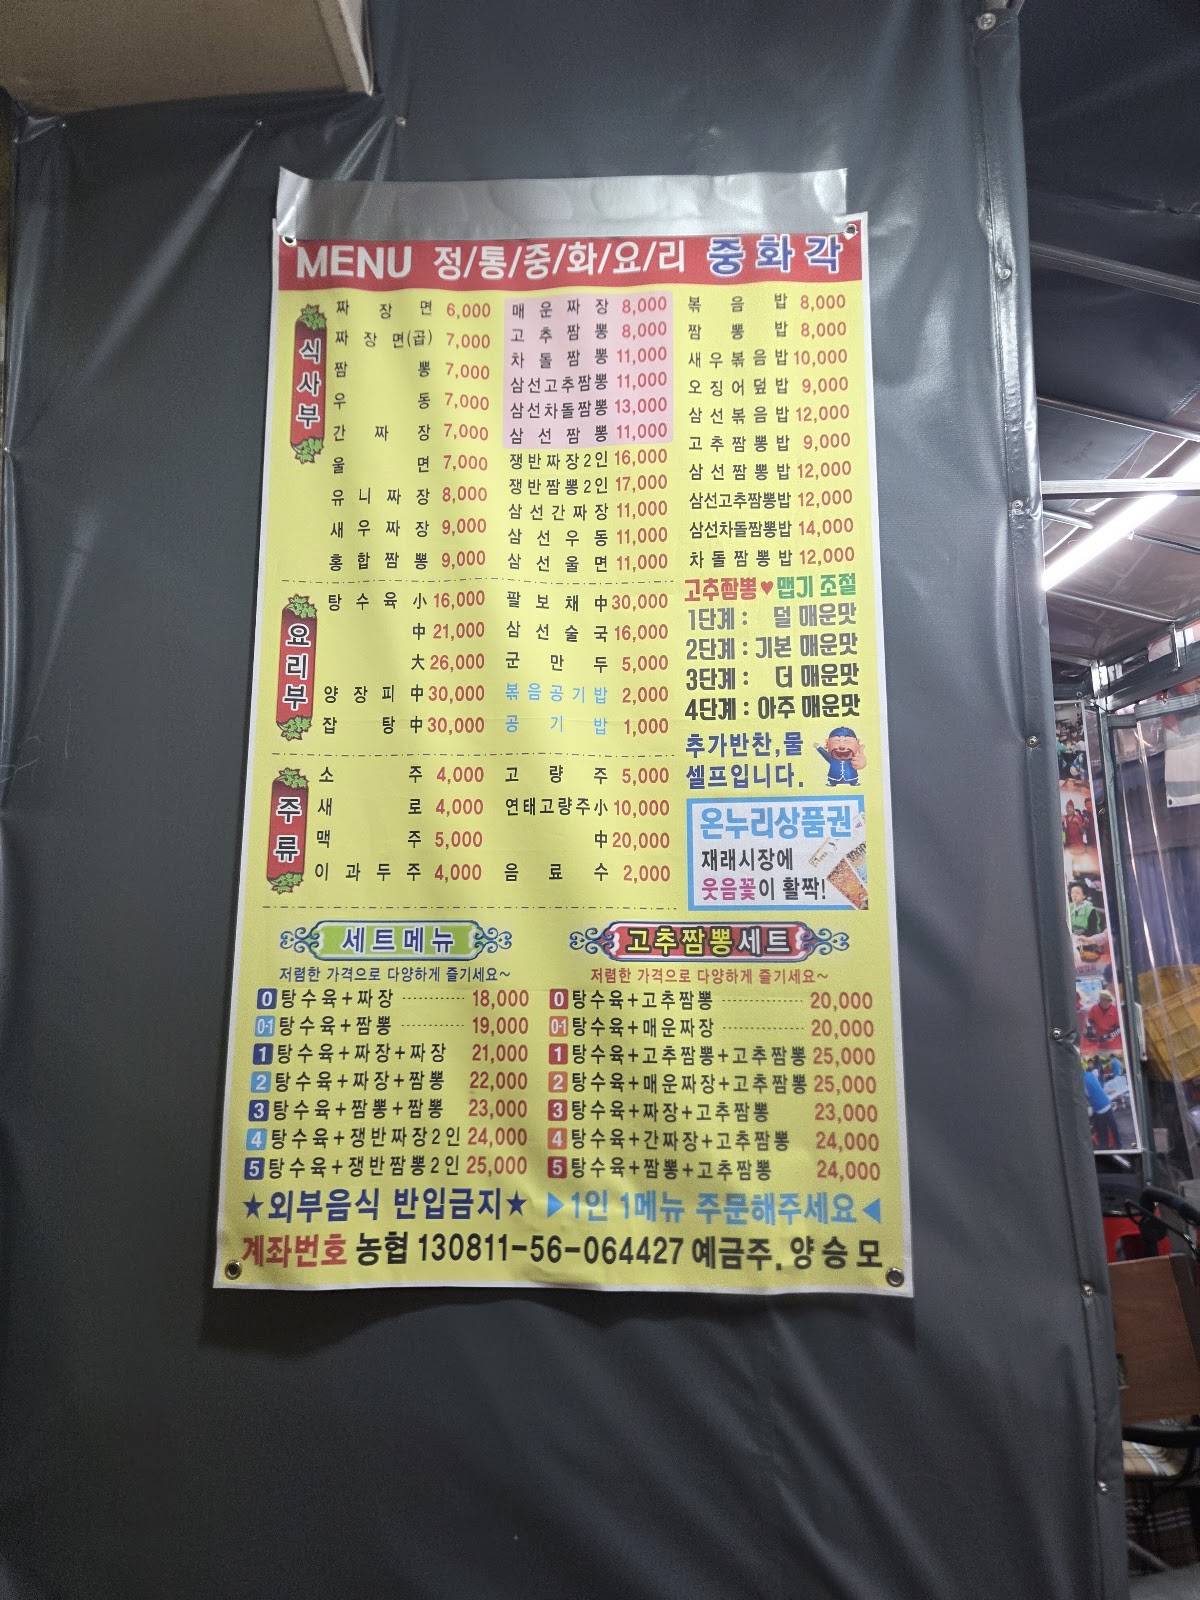 MENU 정/통/중/화/요/리 중화각
식사부
짜장면 6,000
짜장면(곱) 7,000
짬뽕 7,000
우동 7,000
간짜장 7,000
울면 7,000
유니짜장 8,000
새우짜장 9,000
홍합짬뽕 9,000
매운짜장 8,000
고추짬뽕 8,000
차돌짬뽕 11,000
삼선고추짬뽕 11,000
삼선차돌짬뽕 13,000
삼선짬뽕 11,000
쟁반짜장2인 16,000
쟁반짬뽕2인 17,000
삼선간짜장 11,000
삼선우동 11,000
삼선울면 11,000
볶음밥 8,000
짬뽕밥 8,000
새우볶음밥 10,000
오징어덮밥 9,000
삼선볶음밥 12,000
고추짬뽕밥 9,000
삼선짬뽕밥 12,000
삼선고추짬뽕밥 12,000
삼선차돌짬뽕밥 14,000
차돌짬뽕밥 12,000
요리부
탕수육 小 16,000
中 21,000
大 26,000
양장피 中 30,000
잡탕 中 30,000
팔보채 中 30,000
삼선술국 16,000
군만두 5,000
볶음공기밥 2,000
공기밥 1,000
고추짬뽕♥맵기 조절
1단계 : 덜 매운맛
2단계 : 기본 매운맛
3단계 : 더 매운맛
4단계 : 아주 매운맛
추가반찬,물
셀프입니다.
주류
소주 4,000
새로 4,000
맥주 5,000
이과두주 4,000
고량주 5,000
연태고량주小 10,000
中 20,000
음료수 2,000
온누리상품권
재래시장에
웃음꽃이 활짝!
세트메뉴
저렴한 가격으로 다양하게 즐기세요~
0 탕수육+짜장 18,000
0-1 탕수육+짬뽕 19,000
1 탕수육+짜장+짜장 21,000
2 탕수육+짜장+짬뽕 22,000
3 탕수육+짬뽕+짬뽕 23,000
4 탕수육+쟁반짜장2인 24,000
5 탕수육+쟁반짬뽕2인 25,000
고추짬뽕세트
저렴한 가격으로 다양하게 즐기세요~
0 탕수육+고추짬뽕 20,000
0-1 탕수육+매운짜장 20,000
1 탕수육+고추짬뽕+고추짬뽕 25,000
2 탕수육+매운짜장+고추짬뽕 25,000
3 탕수육+짜장+고추짬뽕 23,000
4 탕수육+간짜장+고추짬뽕 24,000
5 탕수육+짬뽕+고추짬뽕 24,000
★외부음식 반입금지★ ▶1인 1메뉴 주문해주세요◀
계좌번호 농협 130811-56-064427 예금주. 양승모